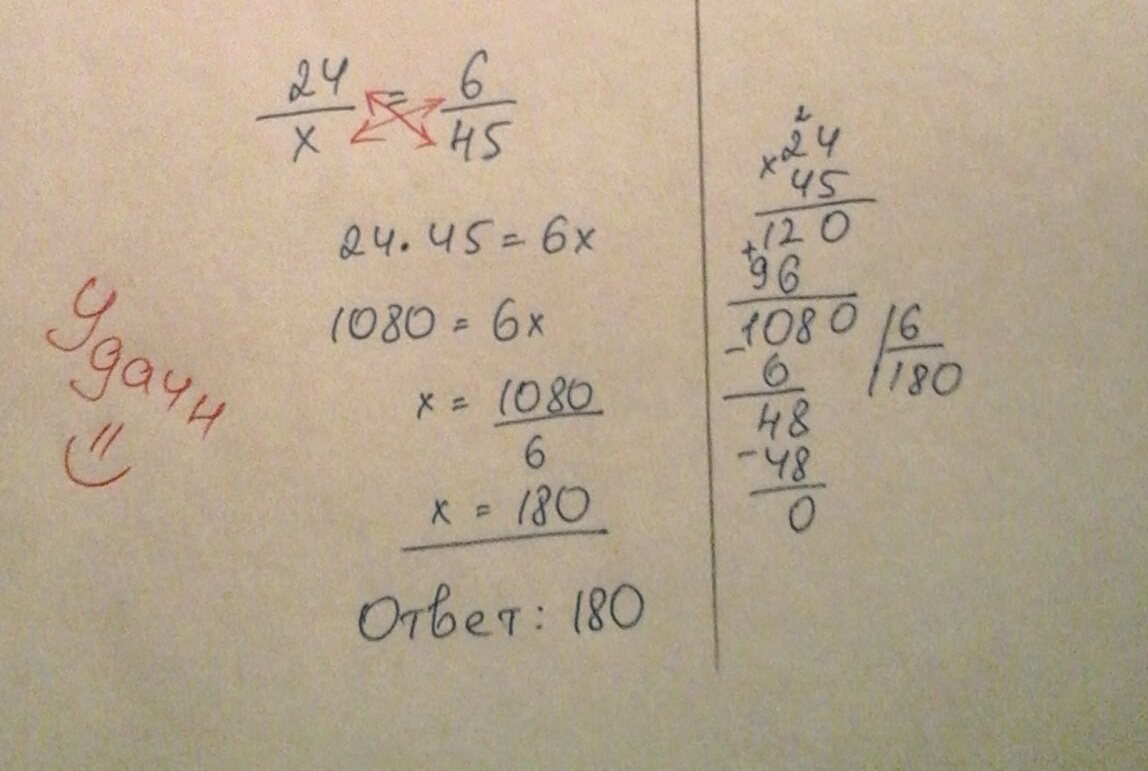 24/x = 6/45
24 · 45 = 6x
1080 = 6x
x = 1080/6
x = 180
Ответ: 180
Удачи
2
× 24
45
120
+ 96
- 1080 | 6
6 | 180
48
- 48
0